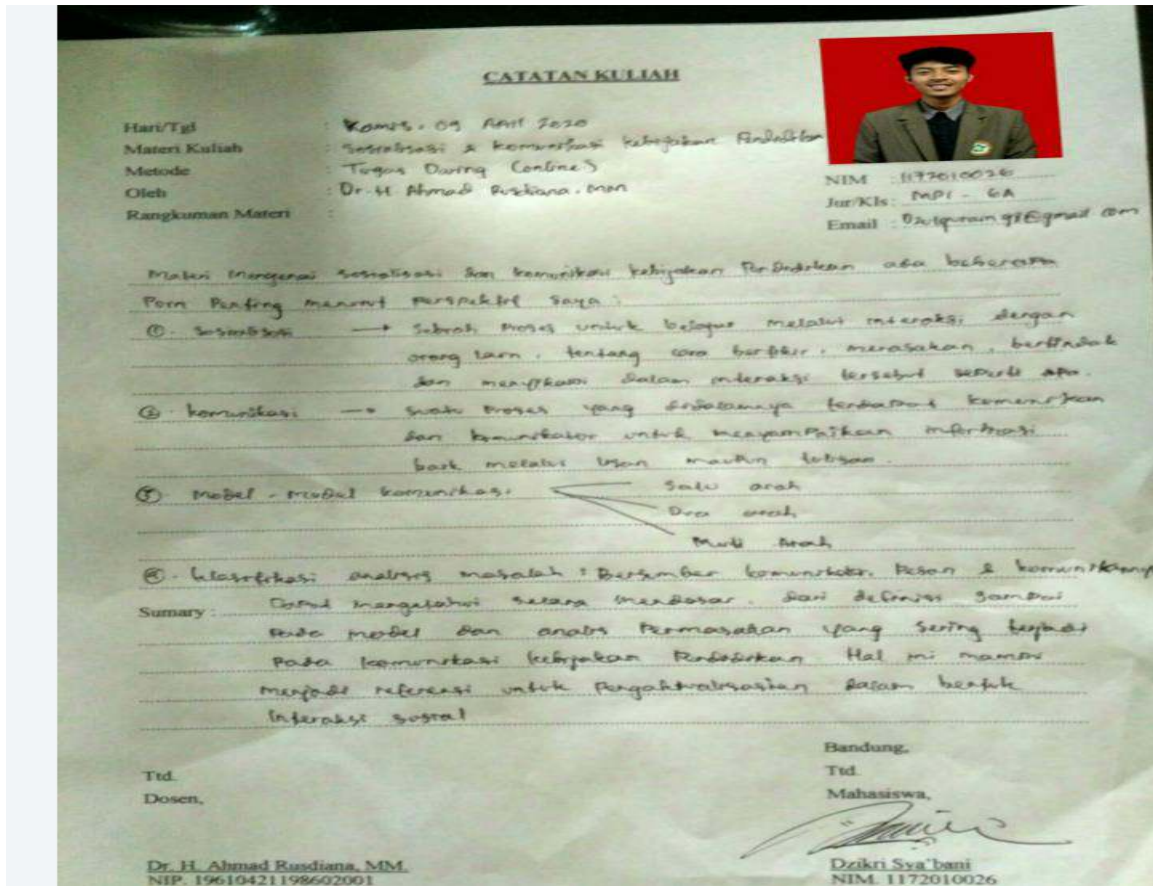 CATATAN KULIAH
Hari/Tgl : Kamis, 09 April 2020
Materi Kuliah : Sosialisasi & komunikasi kebijakan Pendidikan
Metode : Tugas Daring (online)
Oleh : Dr. H Ahmad Rusdiana, MM
Rangkuman Materi :
NIM : 1172010026
Jur/Kls : MPI - 6A
Email : @gmail.com
Materi mengenai sosialisasi dan komunikasi kebijakan Pendidikan ada beberapa
Poin Penting menurut perspektif saya :
① Sosialisasi → Sebuah proses untuk belajar melalui interaksi dengan
orang lain, tentang cara berfikir, merasakan, bertindak
dan dalam interaksi tersebut seperti apa.
② komunikasi → suatu proses yang didalamnya terdapat komunikan
dan komunikator untuk menyampaikan informasi
baik melalui lisan maupun tulisan.
③ Model - model komunikasi
Satu arah
Dua arah
Multi Arah
④ klasifikasi analisis masalah : Bersumber komunikator, Pesan & komunikannya
Sumary : Dapat mengetahui secara mendasar, dari definisi sampai
pada model dan analisis Permasalahan yang sering terjadi
pada komunikasi kebijakan Pendidikan. Hal ini mampu
menjadi referensi untuk dalam bentuk
Interaksi sosial
Bandung,
Ttd.
Dosen,
Ttd.
Mahasiswa,
Dr. H. Ahmad Rusdiana, MM.
NIP. 19610421198602001
Dzikri Sya'bani
NIM. 1172010026